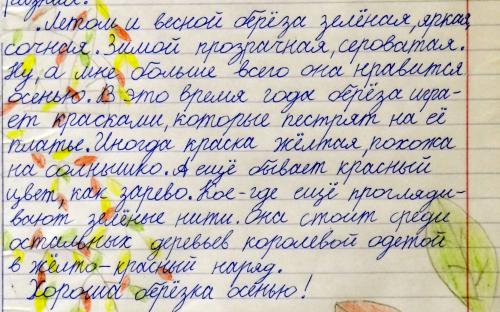 Летом и весной берёза зелёная, яркая,
сочная. Зимой прозрачная, сероватая.
Ну, а мне больше всего она нравится
осенью. В это время года берёза игра-
ет красками, которые пестрят на её
платье. Иногда краска жёлтая, похожа
на солнышко. А ещё бывает красный
цвет, как зарево. Кое-где ещё прогляды-
вают зелёные нити. Она стоит среди
остальных деревьев королевой одетой
в жёлто-красный наряд.
Хороша берёзка осенью!